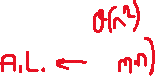 O(n²)
A.L. ← m+n)